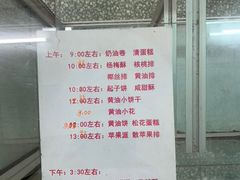 上午: 9:00左右: 奶油卷 清蛋糕
10:00左右: 杨梅酥 核桃排
椰丝排 黄油排
10:00左右: 起子饼 咸甜酥
12:00左右: 黄油小饼干
黄油小花
左右: 黄油饼 松花蛋糕
13:00左右: 苹果派 散苹果排
下午: 3:30左右: